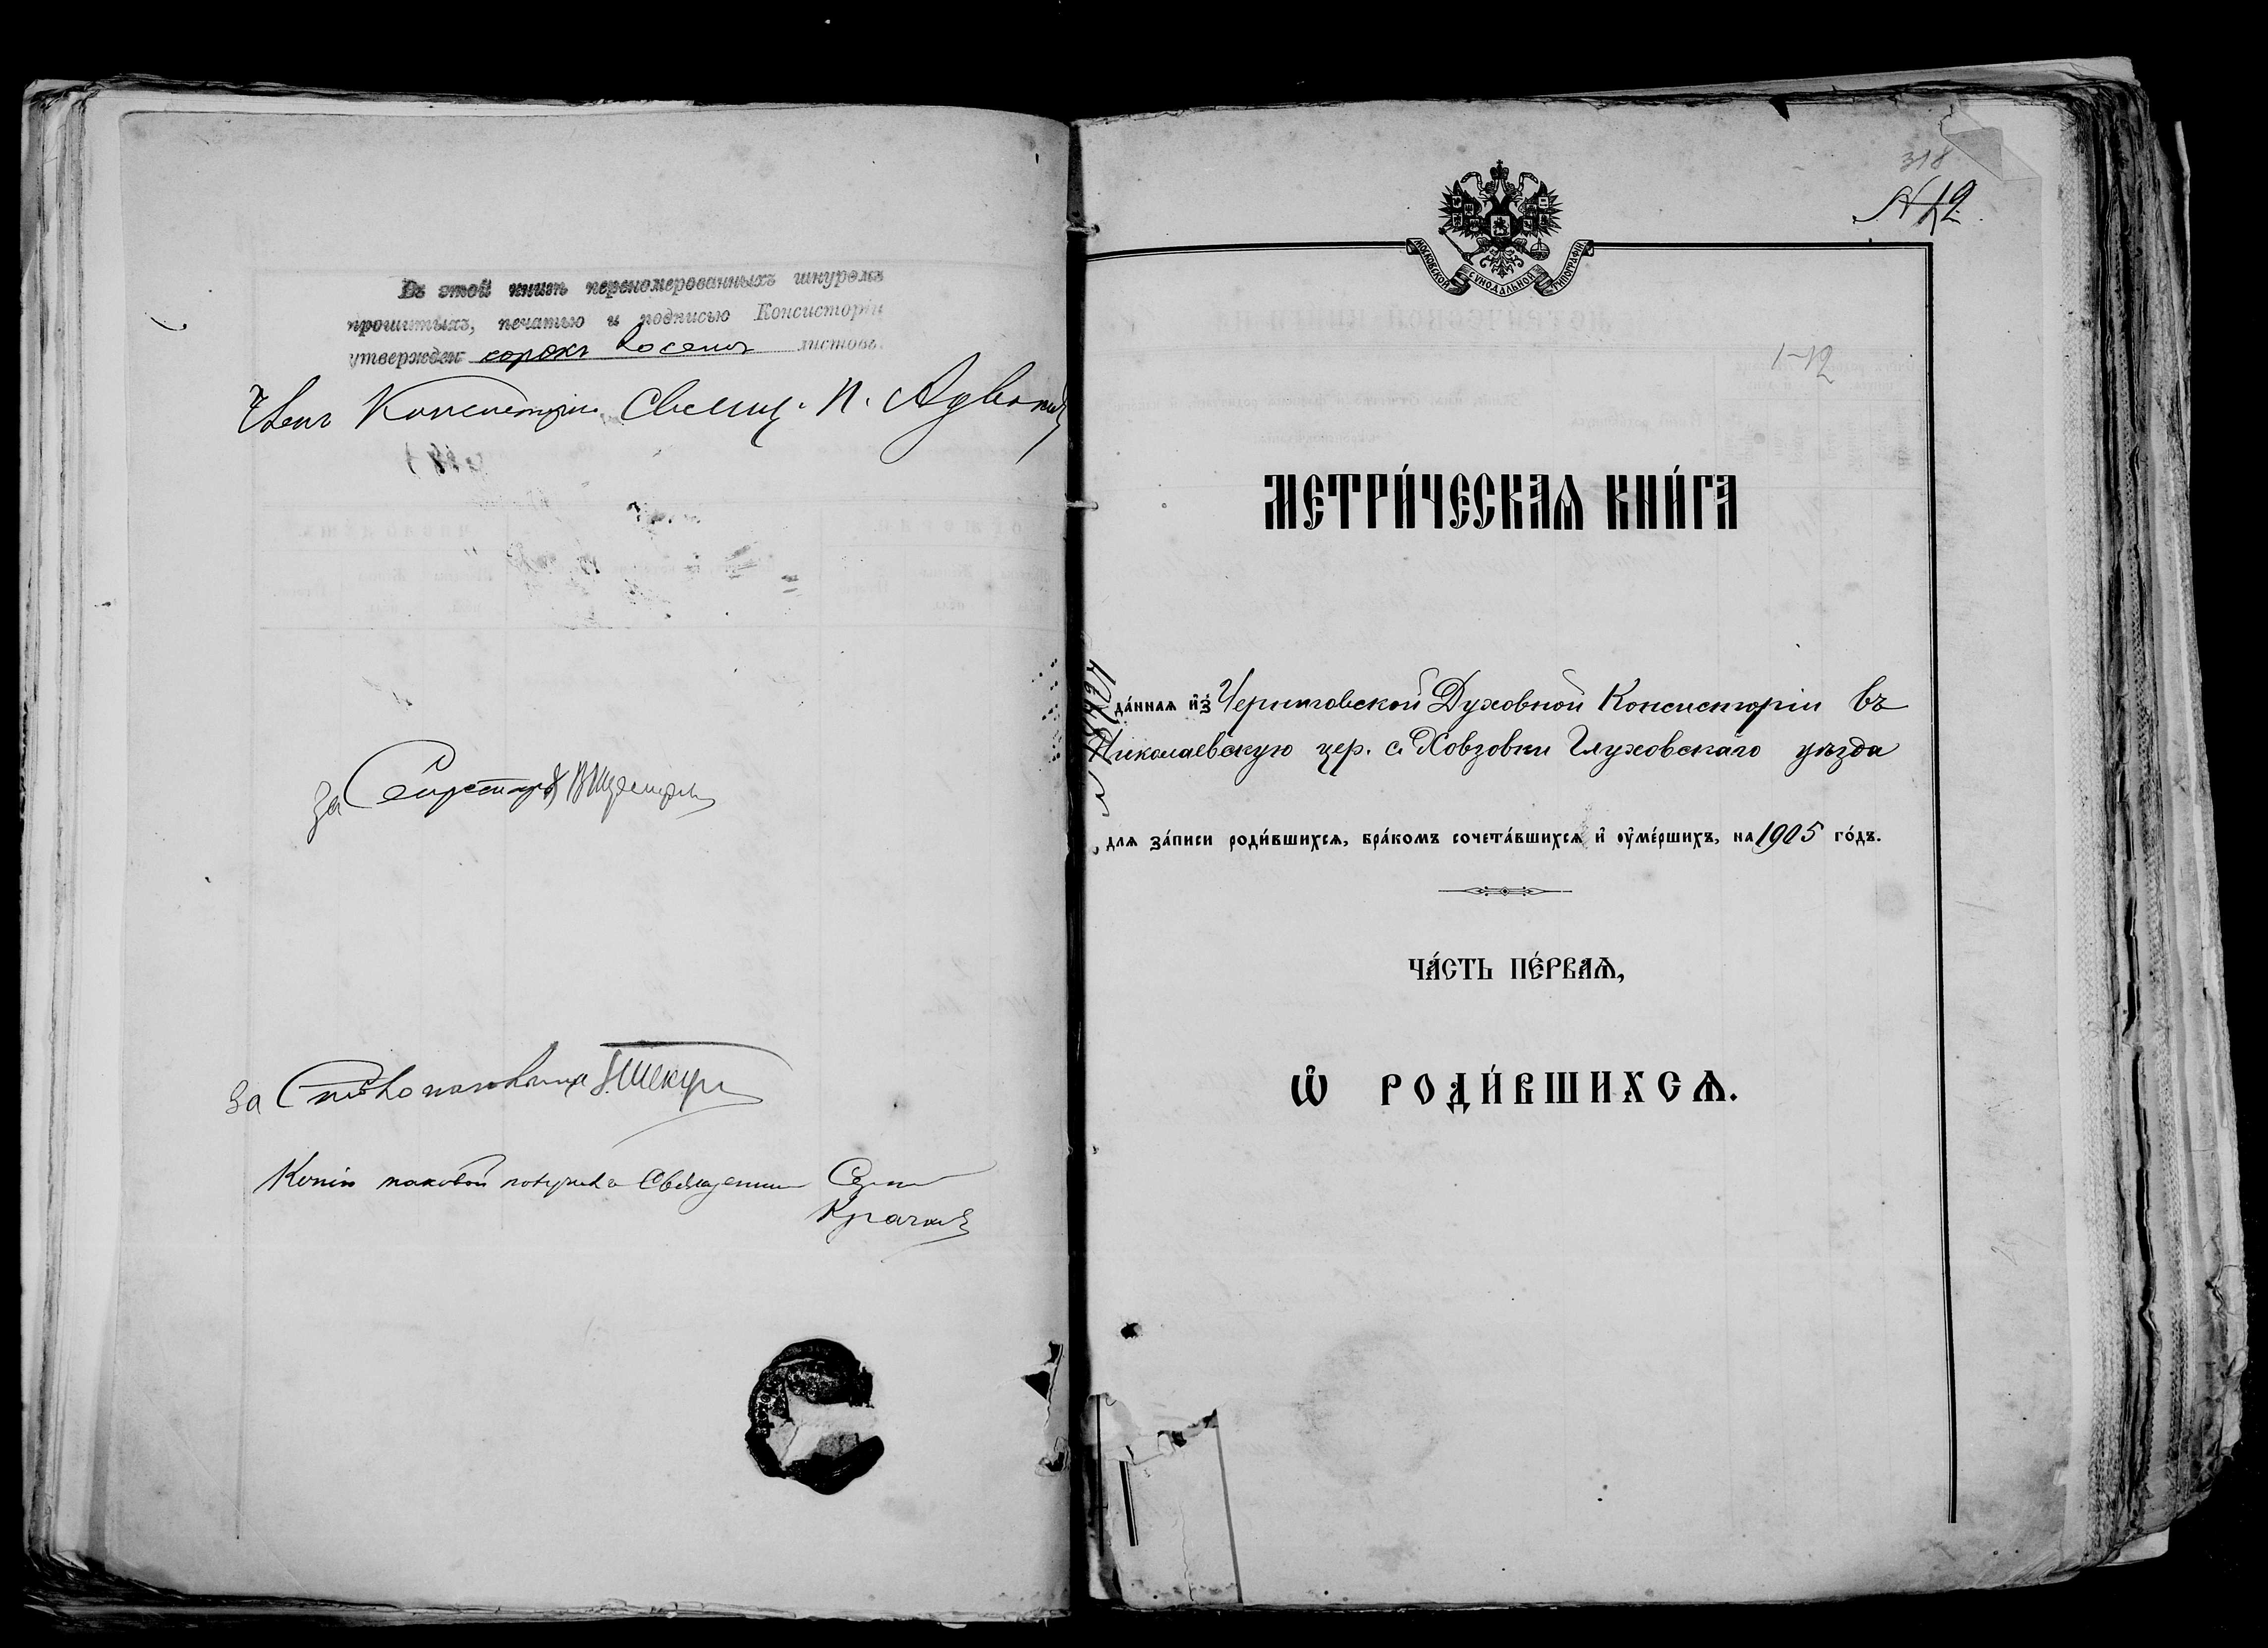 Въ этой книгѣ переномерованныхъ шнуромъ
прошитыхъ, печатью и подписью Консисторіи
утвержден сорокъ восемь листовъ.
Членъ Консисторіи Священ. П.
За Секретаря
За Столоначальника
Копію таковой получилъ Священникъ
318
№ 12
МОСКОВСКОЙ СѴНОДАЛЬНОЙ ТИПОГРАФІИ
1-12
МЕТРИ́ЧЕСКАѦ КНИ́ГА
да́ннаѧ и҆з̾ Черниговской Духовной Консисторіи въ
Николаевскую цер. с. Ховзовки Глуховскаго уѣзда
длѧ за́писи роди́вшихсѧ, бра́комъ сочета́вшихсѧ и҆ ᲂу҆ме́ршихъ, на 1905 го́дъ.
ЧА́СТЬ ПЕ́РВАѦ,
Ѡ҆ РОДИ́ВШИХСѦ.